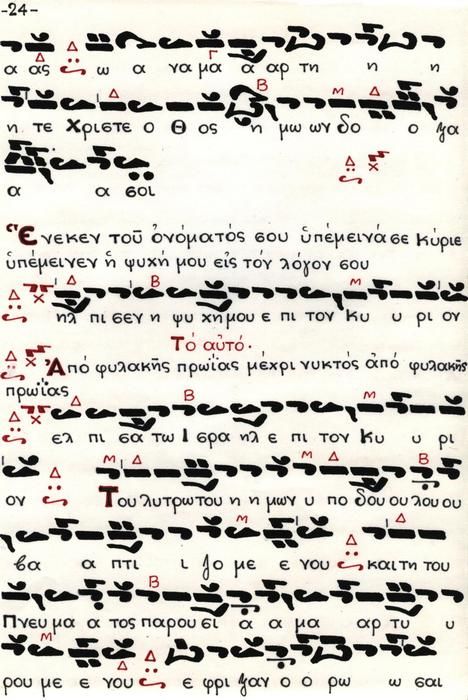 -24-
α ας ω α γα μα α αρ τη η η
η τε Χριστε ο Θ ος η μω ων δο ο ξα
α α σοι
Ἕνεκεν τοῦ ὀνόματός σου ὑπέμεινά σε Κύριε
ὑπέμεινεν ἡ ψυχή μου εἰς τόν λόγον σου
ηλ πι σεν η ψυ χη μου ε πι τον Κυ υ ρι ον
Τό αὐτό.
Ἀπό φυλακῆς πρωΐας μέχρι νυκτός ἀπό φυλακῆς
πρωΐας
ελ πι σα τω Ι σρα ηλ ε πι τον Κυ υ ρι
ον Του λυτρωτου η η μων υ πο δου ου λου ου
βα α πτι ι ζο με ε νου και τη του
Πνευ μα α τος παρου σι α α μα αρ τυ υ
ρου με ε νου ε φρι ξαν ο ο ρω ω σαι